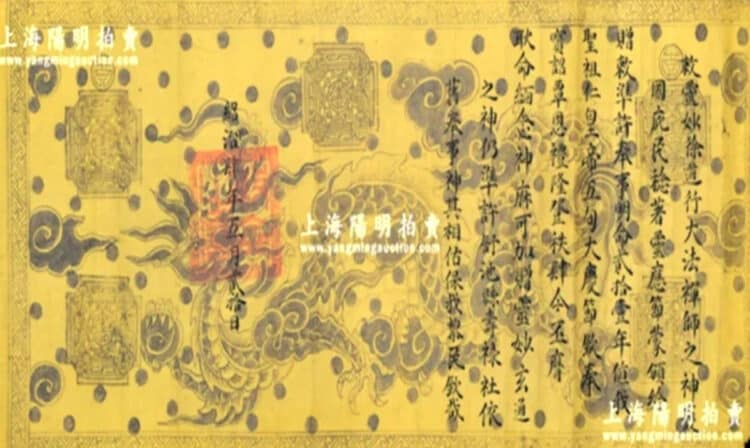 敕靈妙徐道行大法禪師之神
國庇民稔著靈應節蒙頒給
贈敕準許奉事明命貳拾壹年值我
聖祖仁皇帝五旬大慶節欽奉
寶詔覃恩禮隆登秩肆今丕膺
耿命緬念神庥可加贈靈妙玄通
之神仍準許祿社依
舊奉事神其相佑保我黎民欽哉
紹治肆年五月貳拾日
上海陽明拍賣
www.yangmingauction.com
上海陽明拍賣
www.yangmingauction.com
上海陽明拍賣
www.yangmingauction.com